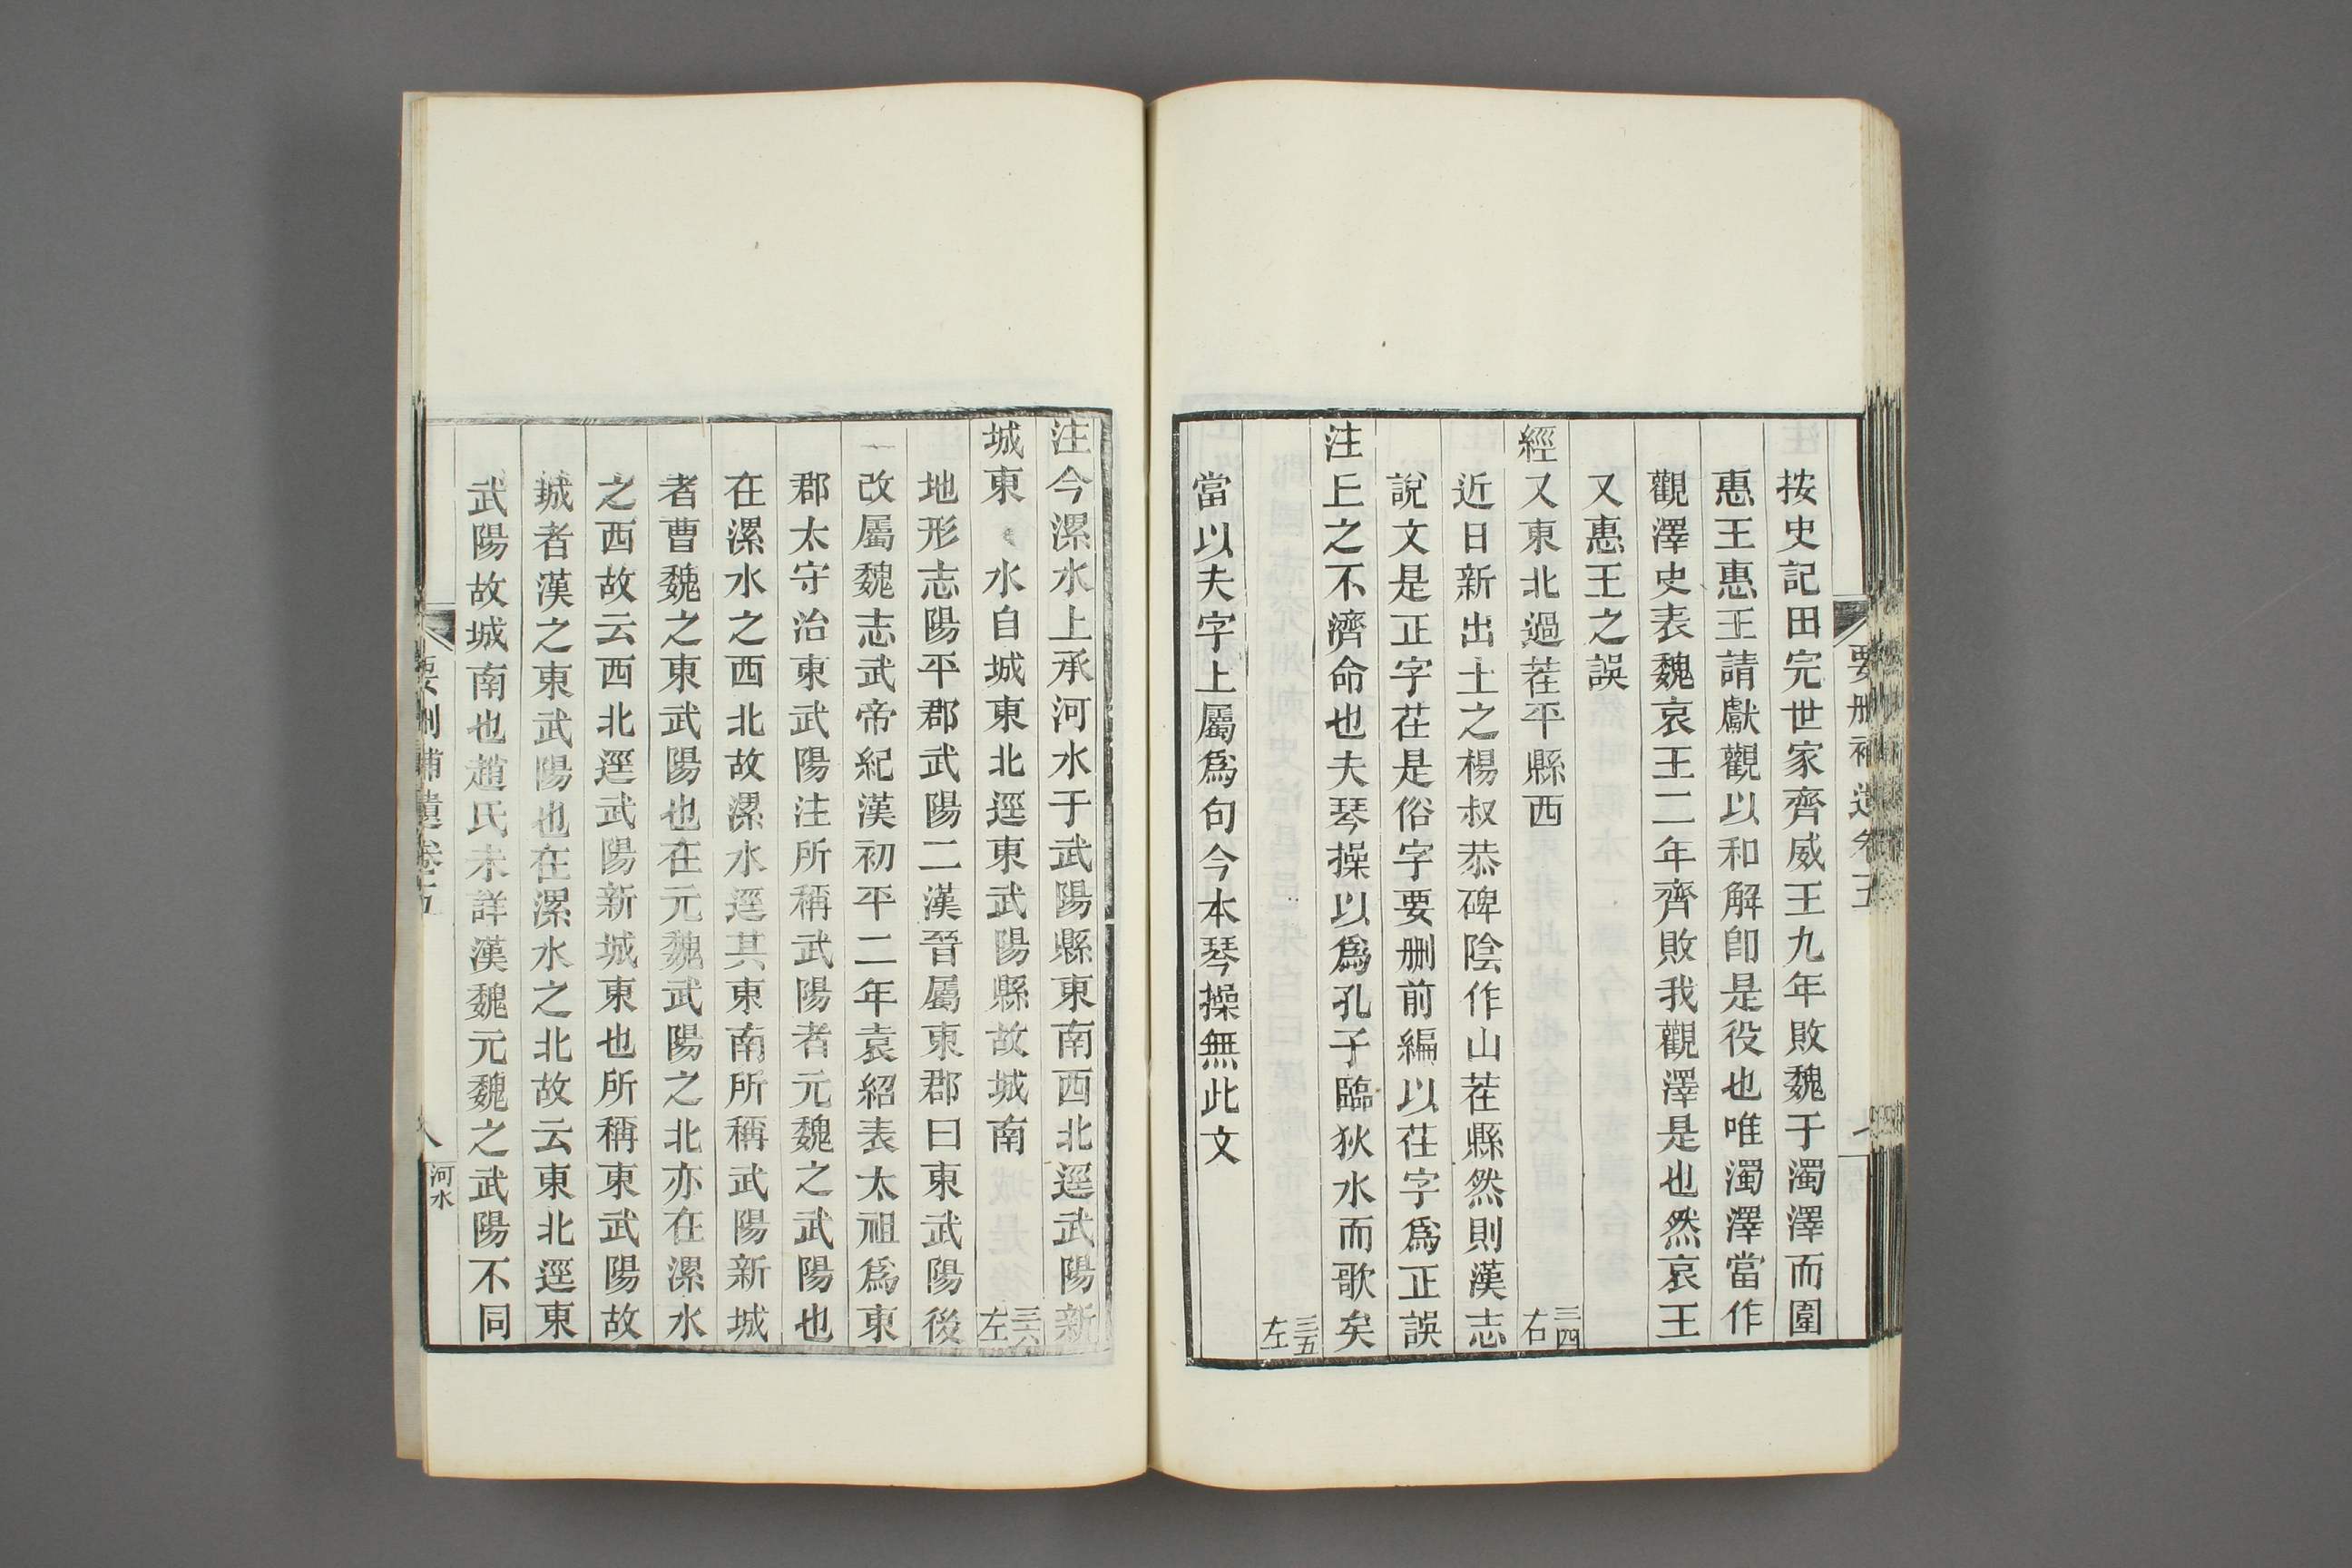 要刪補遺卷五
按史記田完世家齊威王九年敗魏于濁澤而圍
惠王惠王請獻觀以和解卽是役也唯濁澤當作
觀澤史表魏哀王二年齊敗我觀澤是也然哀王
又惠王之誤
經又東北過茬平縣西 三四右
近日新出土之楊叔恭碑陰作山茬縣然則漢志
說文是正字茌是俗字要刪前編以茌字爲正誤
注上之不濟命也夫琴操以爲孔子臨狄水而歌矣
三五左
當以夫字上屬爲句今本琴操無此文
注今漯水上承河水于武陽縣東南西北逕武陽新
城東 水自城東北逕東武陽縣故城南 三六左
地形志陽平郡武陽二漢晉屬東郡曰東武陽後
改屬魏志武帝紀漢初平二年袁紹表太祖爲東
郡太守治東武陽注所稱武陽者元魏之武陽也
在漯水之西北故漯水逕其東南所稱武陽新城
者曹魏之東武陽也在元魏武陽之北亦在漯水
之西故云西北逕武陽新城東也所稱東武陽故
城者漢之東武陽也在漯水之北故云東北逕東
武陽故城南也趙氏未詳漢魏元魏之武陽不同
要刪補遺卷五 八 河水